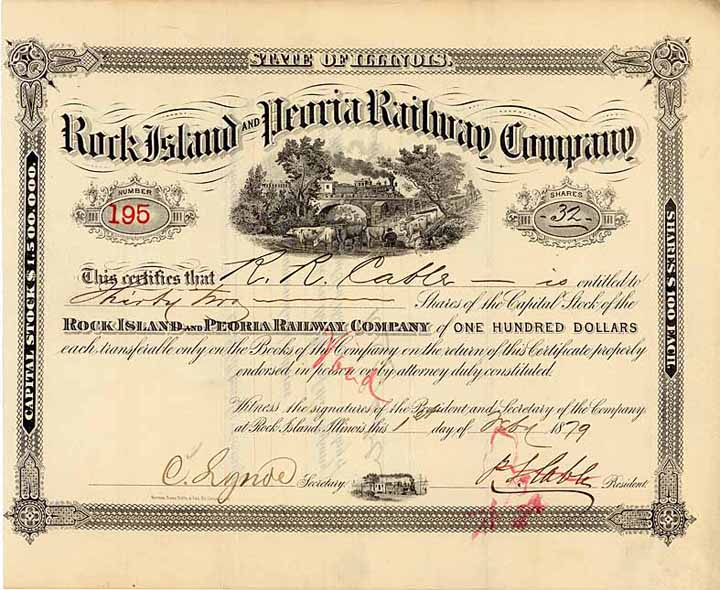 STATE OF ILLINOIS.
Rock Island AND Peoria Railway Company
NUMBER
195
SHARES
32
CAPITAL STOCK $1.500.000.
SHARES $100 EACH.
This certifies that R. R. Cable is entitled to
Thirty two Shares of the Capital Stock of the
ROCK ISLAND AND PEORIA RAILWAY COMPANY of ONE HUNDRED DOLLARS
each, transferable only on the Books of the Company on the return of this Certificate properly
endorsed in person or by attorney duly constituted.
Void
Witness the signatures of the President and Secretary of the Company
at Rock Island, Illinois, this 1st day of 1879
C. Lynde Secretary. Cable President.